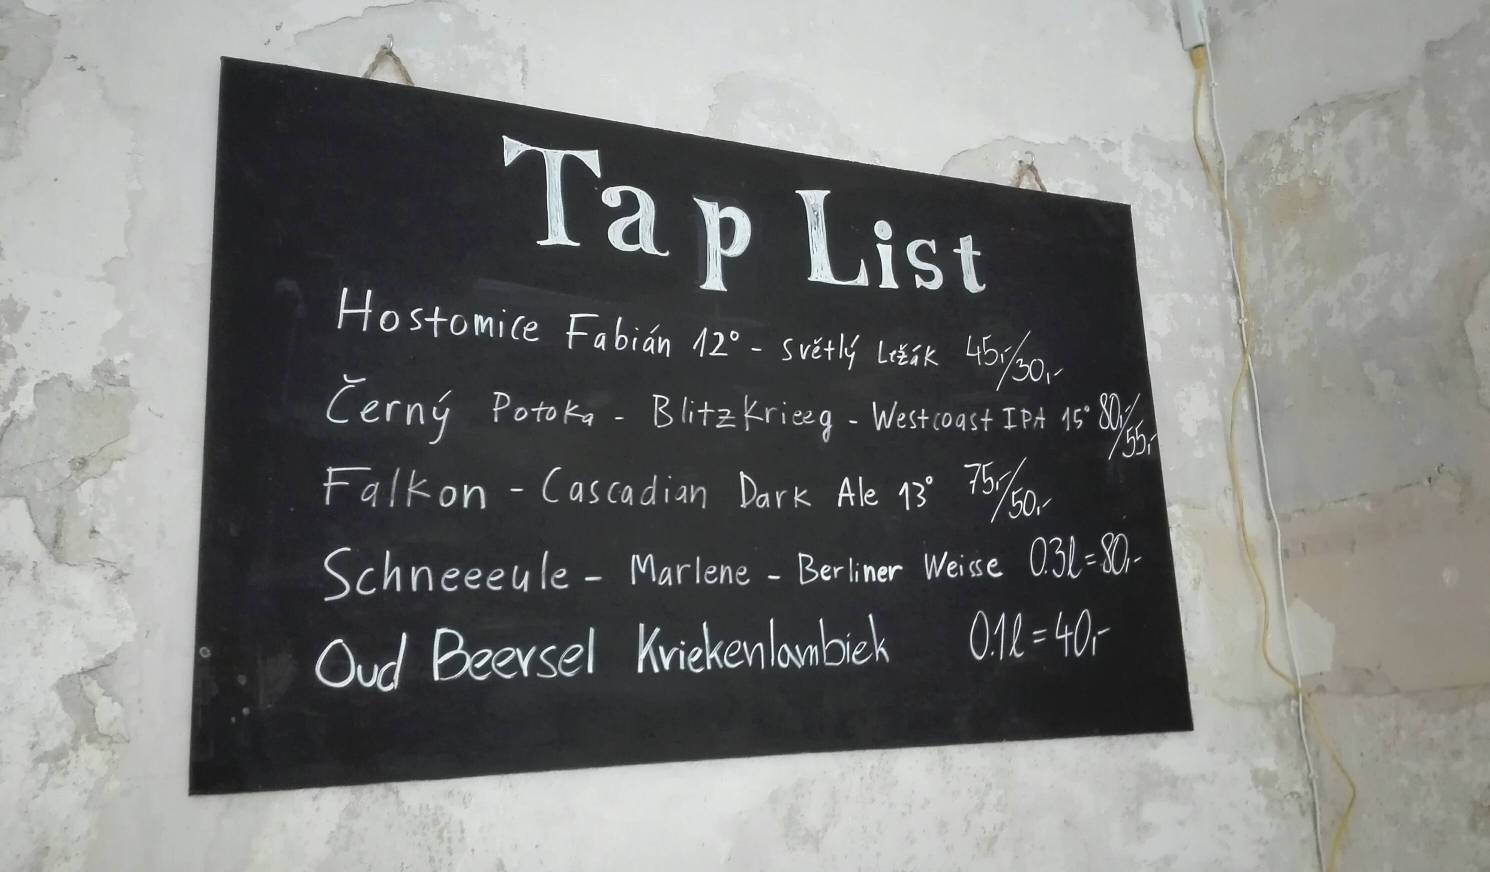 Tap List
Hostomice Fabián 12° - světlý Ležák 45,-/30,-
Černý Potoka - Blitzkrieeg - Westcoast IPA 15° 80,-/55,-
Falkon - Cascadian Dark Ale 13° 75,-/50,-
Schneeeule - Marlene - Berliner Weisse 0.3l=80,-
Oud Beersel Kriekenlambiek 0.1l=40,-